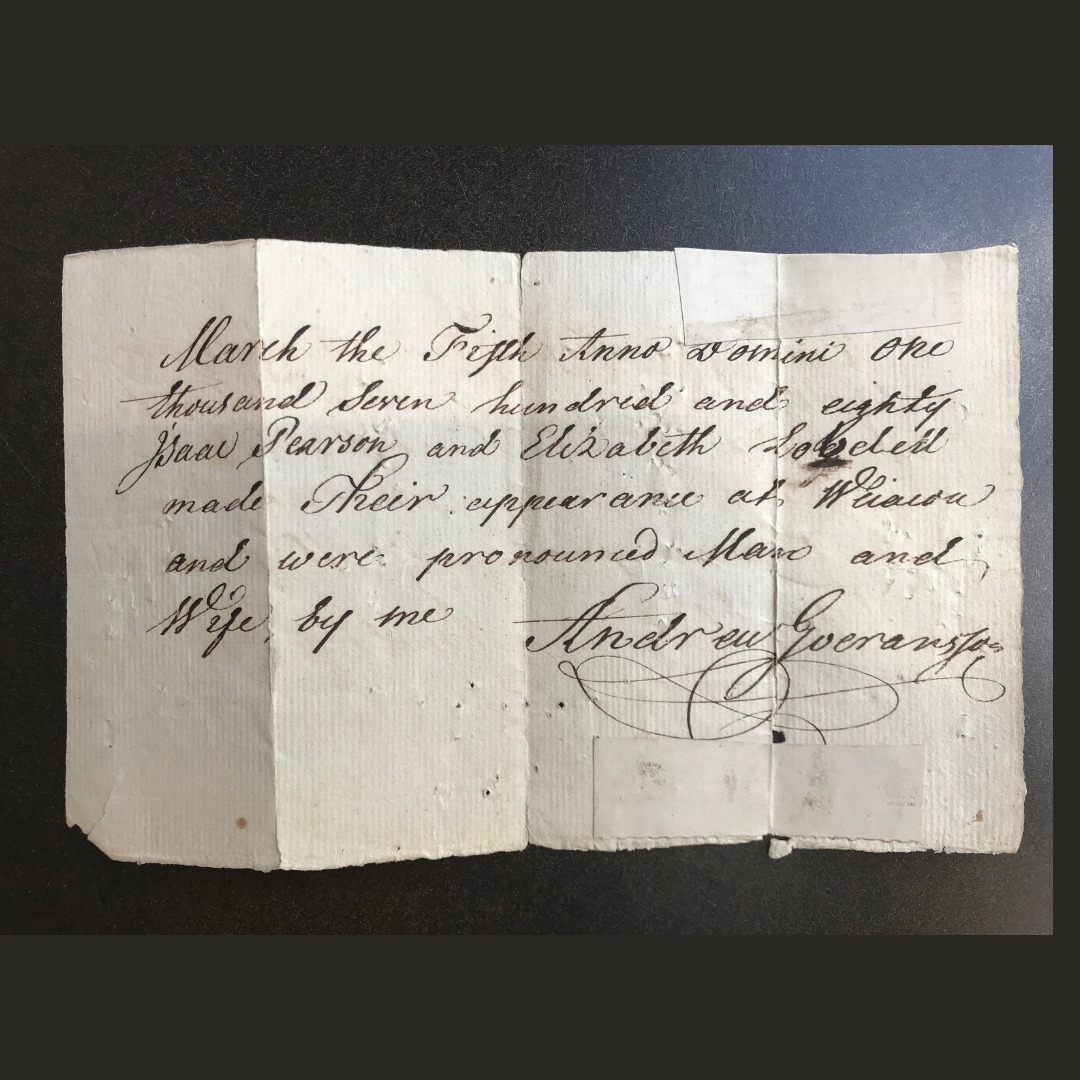 March the Fifth Anno Domini One
thousand Seven hundred and eighty
Isaac Pearson and Elizabeth
made Their appearance at Wiacou
and were pronounced Man and
Wife, by me Andrew Goeransson